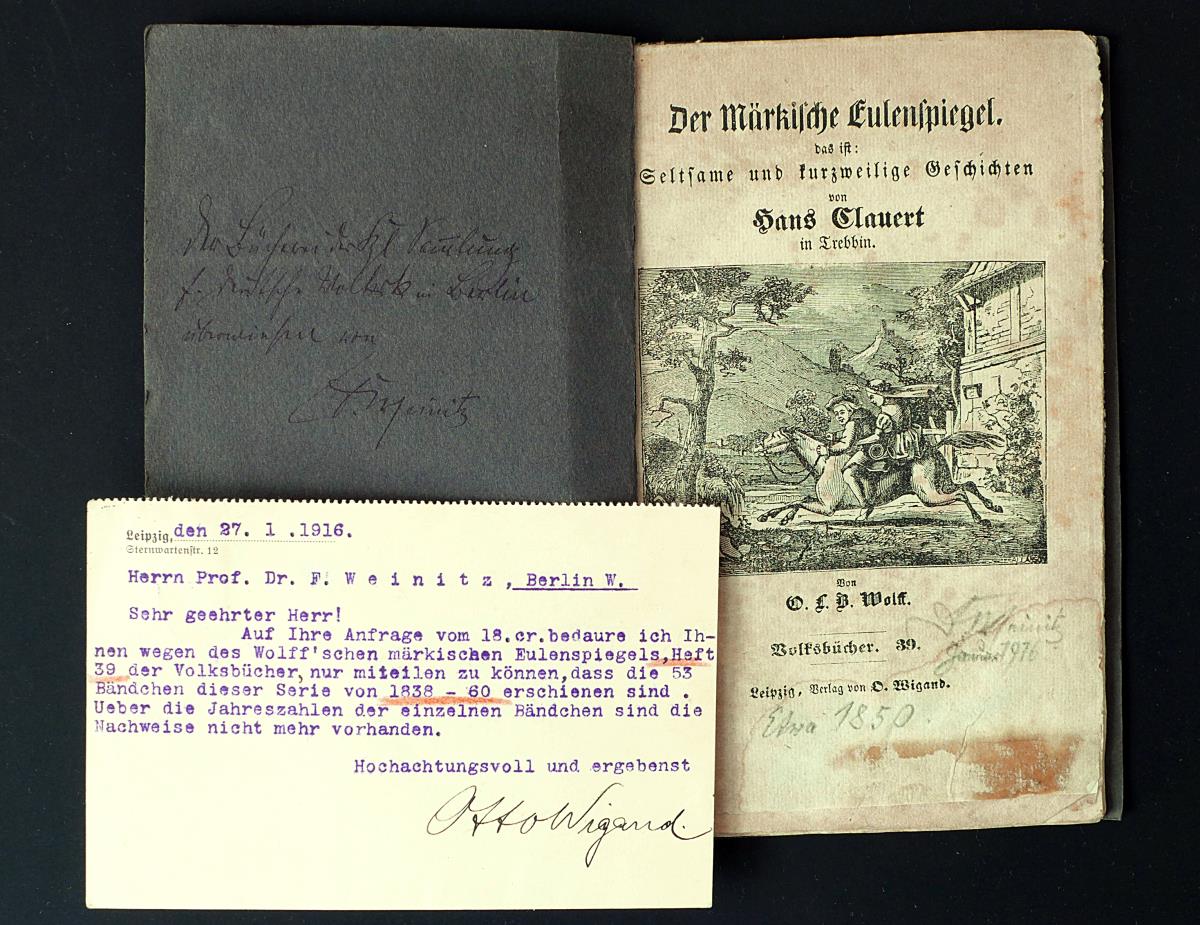 Der Bücherei der Kgl Sammlung
f. deutsche Volksk in Berlin
überwiesen von
F. Weinitz
Der Märkische Eulenspiegel.
das ist:
Seltsame und kurzweilige Geschichten
von
Hans Clauert
in Trebbin.
Von
O. L. B. Wolff.
F. Weinitz
Januar 1916
Volksbücher. 39.
Leipzig, Verlag von O. Wigand.
Etwa 1850.
Leipzig, den 27. 1 .1916.
Sternwartenstr. 12
Herrn Prof. Dr. F. W e i n i t z , Berlin W.
Sehr geehrter Herr!
Auf Ihre Anfrage vom 18.cr.bedaure ich Ih-
nen wegen des Wolff'schen märkischen Eulenspiegels,Heft
39 der Volksbücher,nur miteilen zu können,dass die 53
Bändchen dieser Serie von 1838 - 60 erschienen sind .
Ueber die Jahreszahlen der einzelnen Bändchen sind die
Nachweise nicht mehr vorhanden.
Hochachtungsvoll und ergebenst
Otto Wigand.